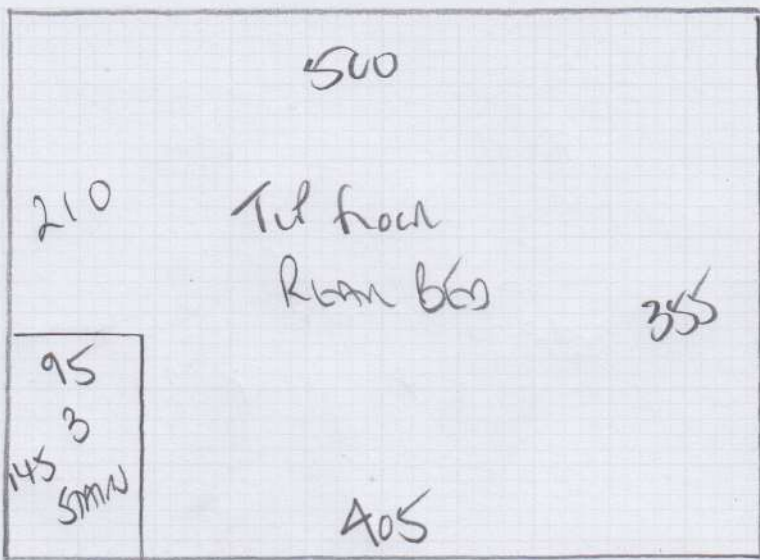 500
210
Top floor
REAR BED
355
95
3
145
STAIR
405